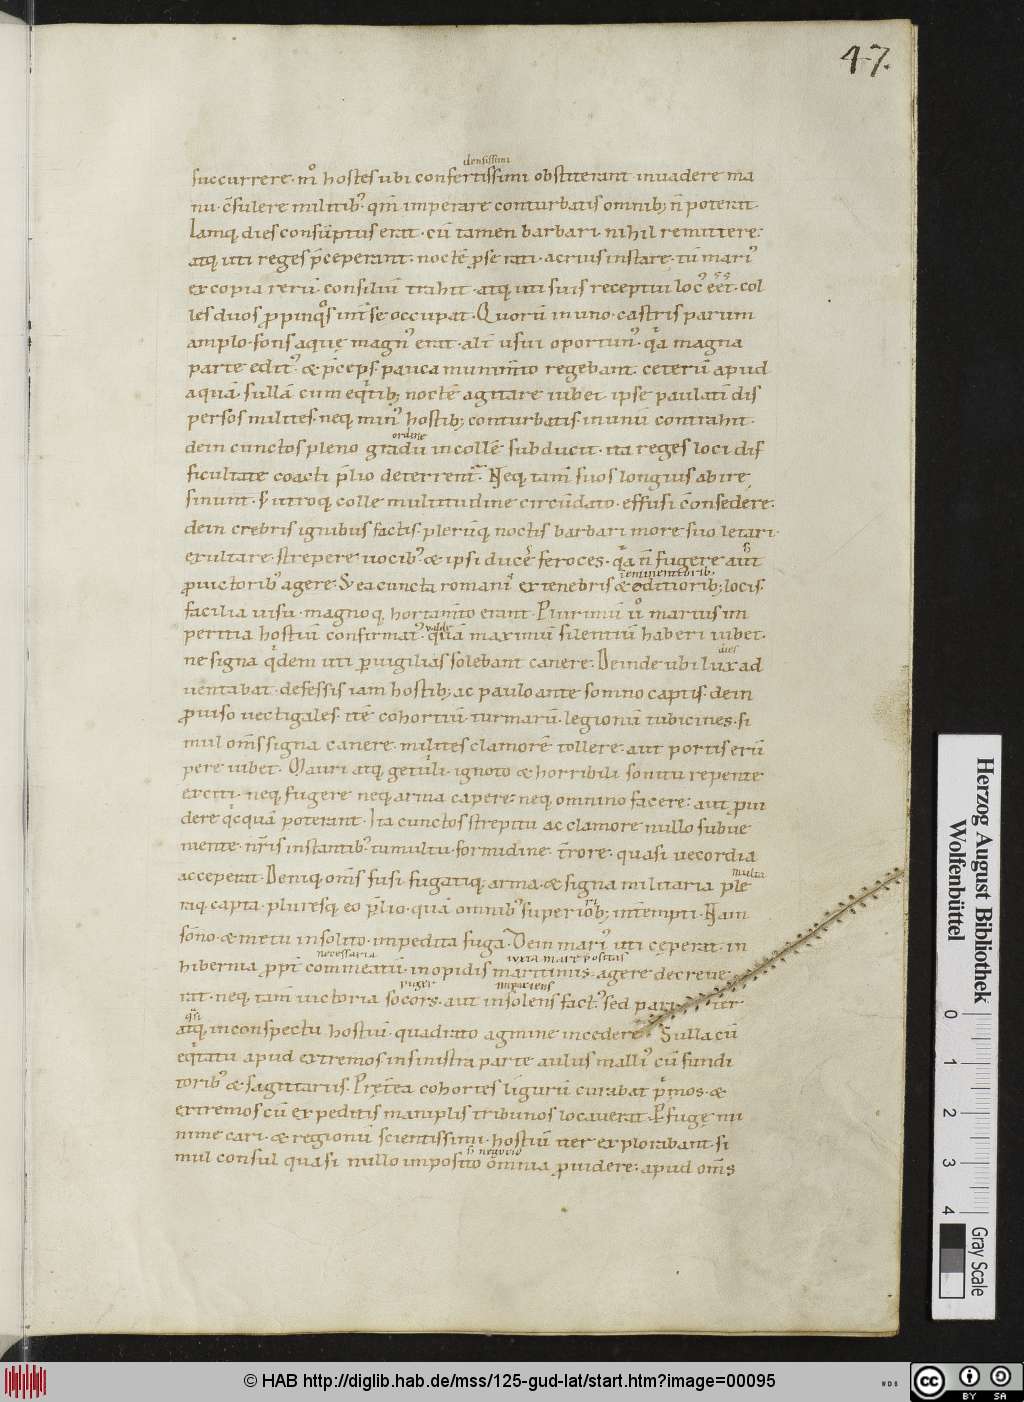 47.
densissimi
succurrere· m̊ hostes ubi confertissimi obstiterant inuadere ma
nu· c̄sulere militib᾽ qm̄ imperare conturbatis omnib; n̄ poterat·
Iamq; dies consūptus erat· cū tamen barbari· nihil remittere:
atq; uti reges p̄ceperant· noctē p̱ se rati· acrius instare· tū mari᾽
ex copia rerū· consiliū trahit· atq; uti suis receptui loc᾽ eēt· col
les duos ꝓpinq̊s int̄ se occupat· Quorū in uno· castris parum
amplo· fons aque magn᾽ erat· alt̄ usui oportun᾽· qͣ magna
parte edit᾽ & p̄ceps· pauca munim̄to regebant· ceterū apud
aquā· sullā cum eqͥtib; noctē agitare iubet ipse paulatī dis
persos milites· neq; min᾽ hostib; conturbatis· in unū contrahit·
ordine
dein cunctos pleno gradu in collē subducit· ita reges loci dif
ficultate coacti p̄lio deterrent᾽· Neq; tam̄ suos longius abire
sinunt· S; utroq; colle multitudine circūdato· effusi c̄onsedere·
dein crebris ignibus factis· plerūq; noctis barbari more suo letari·
exultare· strepere uocib᾽ & ipsi ducēs feroces· qͣa n̄ fugere aut
eminentiorib·
ꝓ uictorib᾽ agere· S; ea cuncta romani᾽ ex tenebris & editiorib; locis·
facilia uisu· magnoq; hortam̄to erant· Plurimū u̾ marius im
peritia hostiū confirmat᾽· quā maximū silentiū haberi iubet·
dies
ne signa qͥdem uti p̱ uigilias solebant canere· Deinde ubi lux ad
uentabat· defessis iam hostib; ac paulo ante somno captis· de in
ꝓuiso uectigales· itē cohortiū· turmarū· legionū tubicines· si
mul om̄s signa canere· milites clamorē tollere· aut portis erū
pere iubet· Mauri atq; getuli· ignoto & horribili sonitu repente
exciti· neq; fugere neq; arma capere: neq; omnino facere: aut ꝓui
dere qͥcquā poterant· Ita cunctos strepitu ac clamore nullo subue
niente· nr̄is instantib᾽ tumultu· formidine· t̄rore· quasi uecordia
multa
acceperat· Deniq; om̄s fusi· fugatiq; arma· & signa militaria ple
raq; capta· pluresq; eo p̄lio· quā omnib᾽ superiorib; int̄empti· Nam
sōno· & metu insolito· impedita fuga· Dein mari᾽ uti cęperat· in
necessaria iuxta mare positas
hibernia ꝓpt̄ commeatū· in opidis maritimis· agere decreue
piger impaciens
rat· neq; tam̄ uictoria socors· aut insolens fact᾽ sed pari iter
atq; in conspectu hostiū· quadrato agmine incedere· Sulla cū
eqͥtatu apud extremos· in sinistra parte aulus malli᾽ cū fundi
torib᾽ & sagittariis· Pręt̄ea cohortes ligurū curabat pͥmos· &
extremos cū expeditis maniplis tribunos locauerat· Pfugę mi
nime cari· & regionū scientissimi· hostiū iter explorabant· si
negotio
mul consul quasi nullo imposito omnia ꝓuidere: apud om̄s
Herzog August Bibliothek
Wolfenbüttel
0
1
2
3
4
Gray Scale
© HAB http://diglib.hab.de/mss/125-gud-lat/start.htm?image=00095
WDB
cc
BY SA